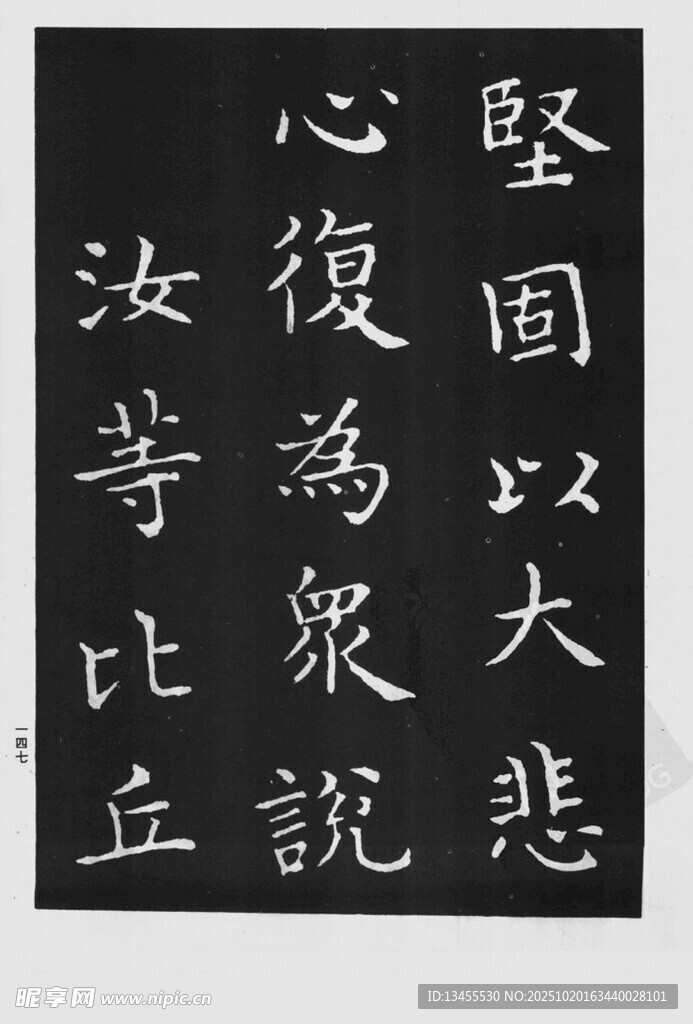 堅固以大悲
心復為眾說
汝等比丘
一四七
昵享网 www.nipic.cn
ID:13455530 NO:20251020163440028101